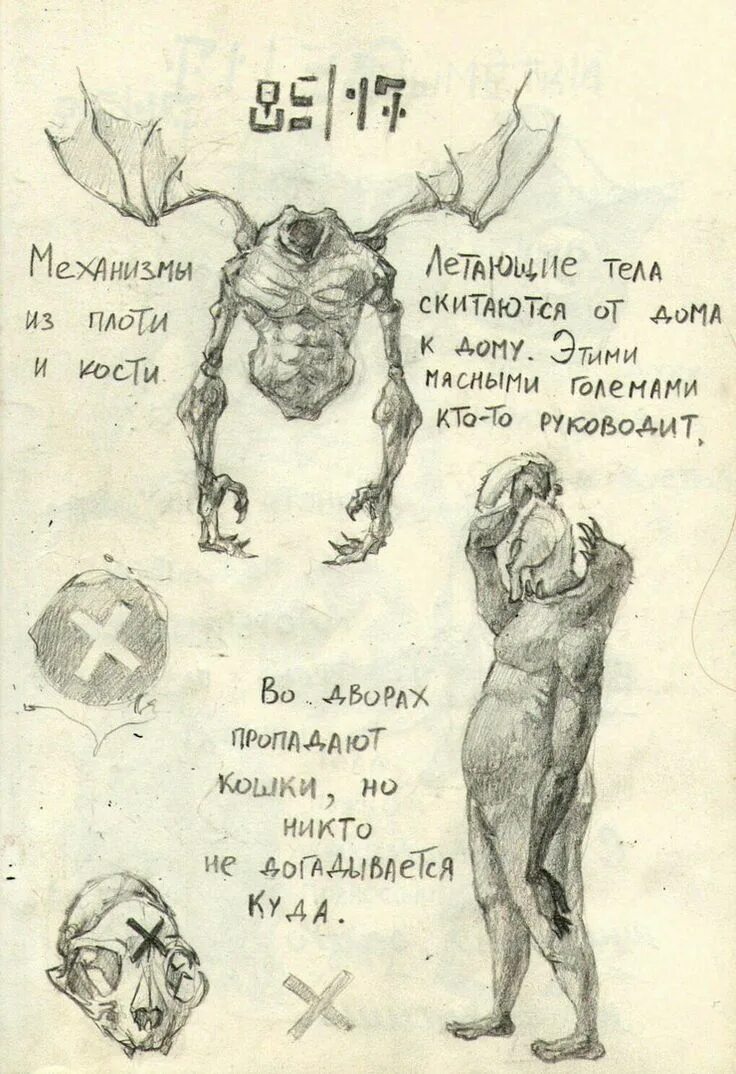 85|17
Механизмы
из плоти
и кости
Летающие тела
скитаются от дома
к дому. Этими
мясными големами
кто-то руководит.
Во дворах
пропадают
кошки, но
никто
не догадывается
куда.